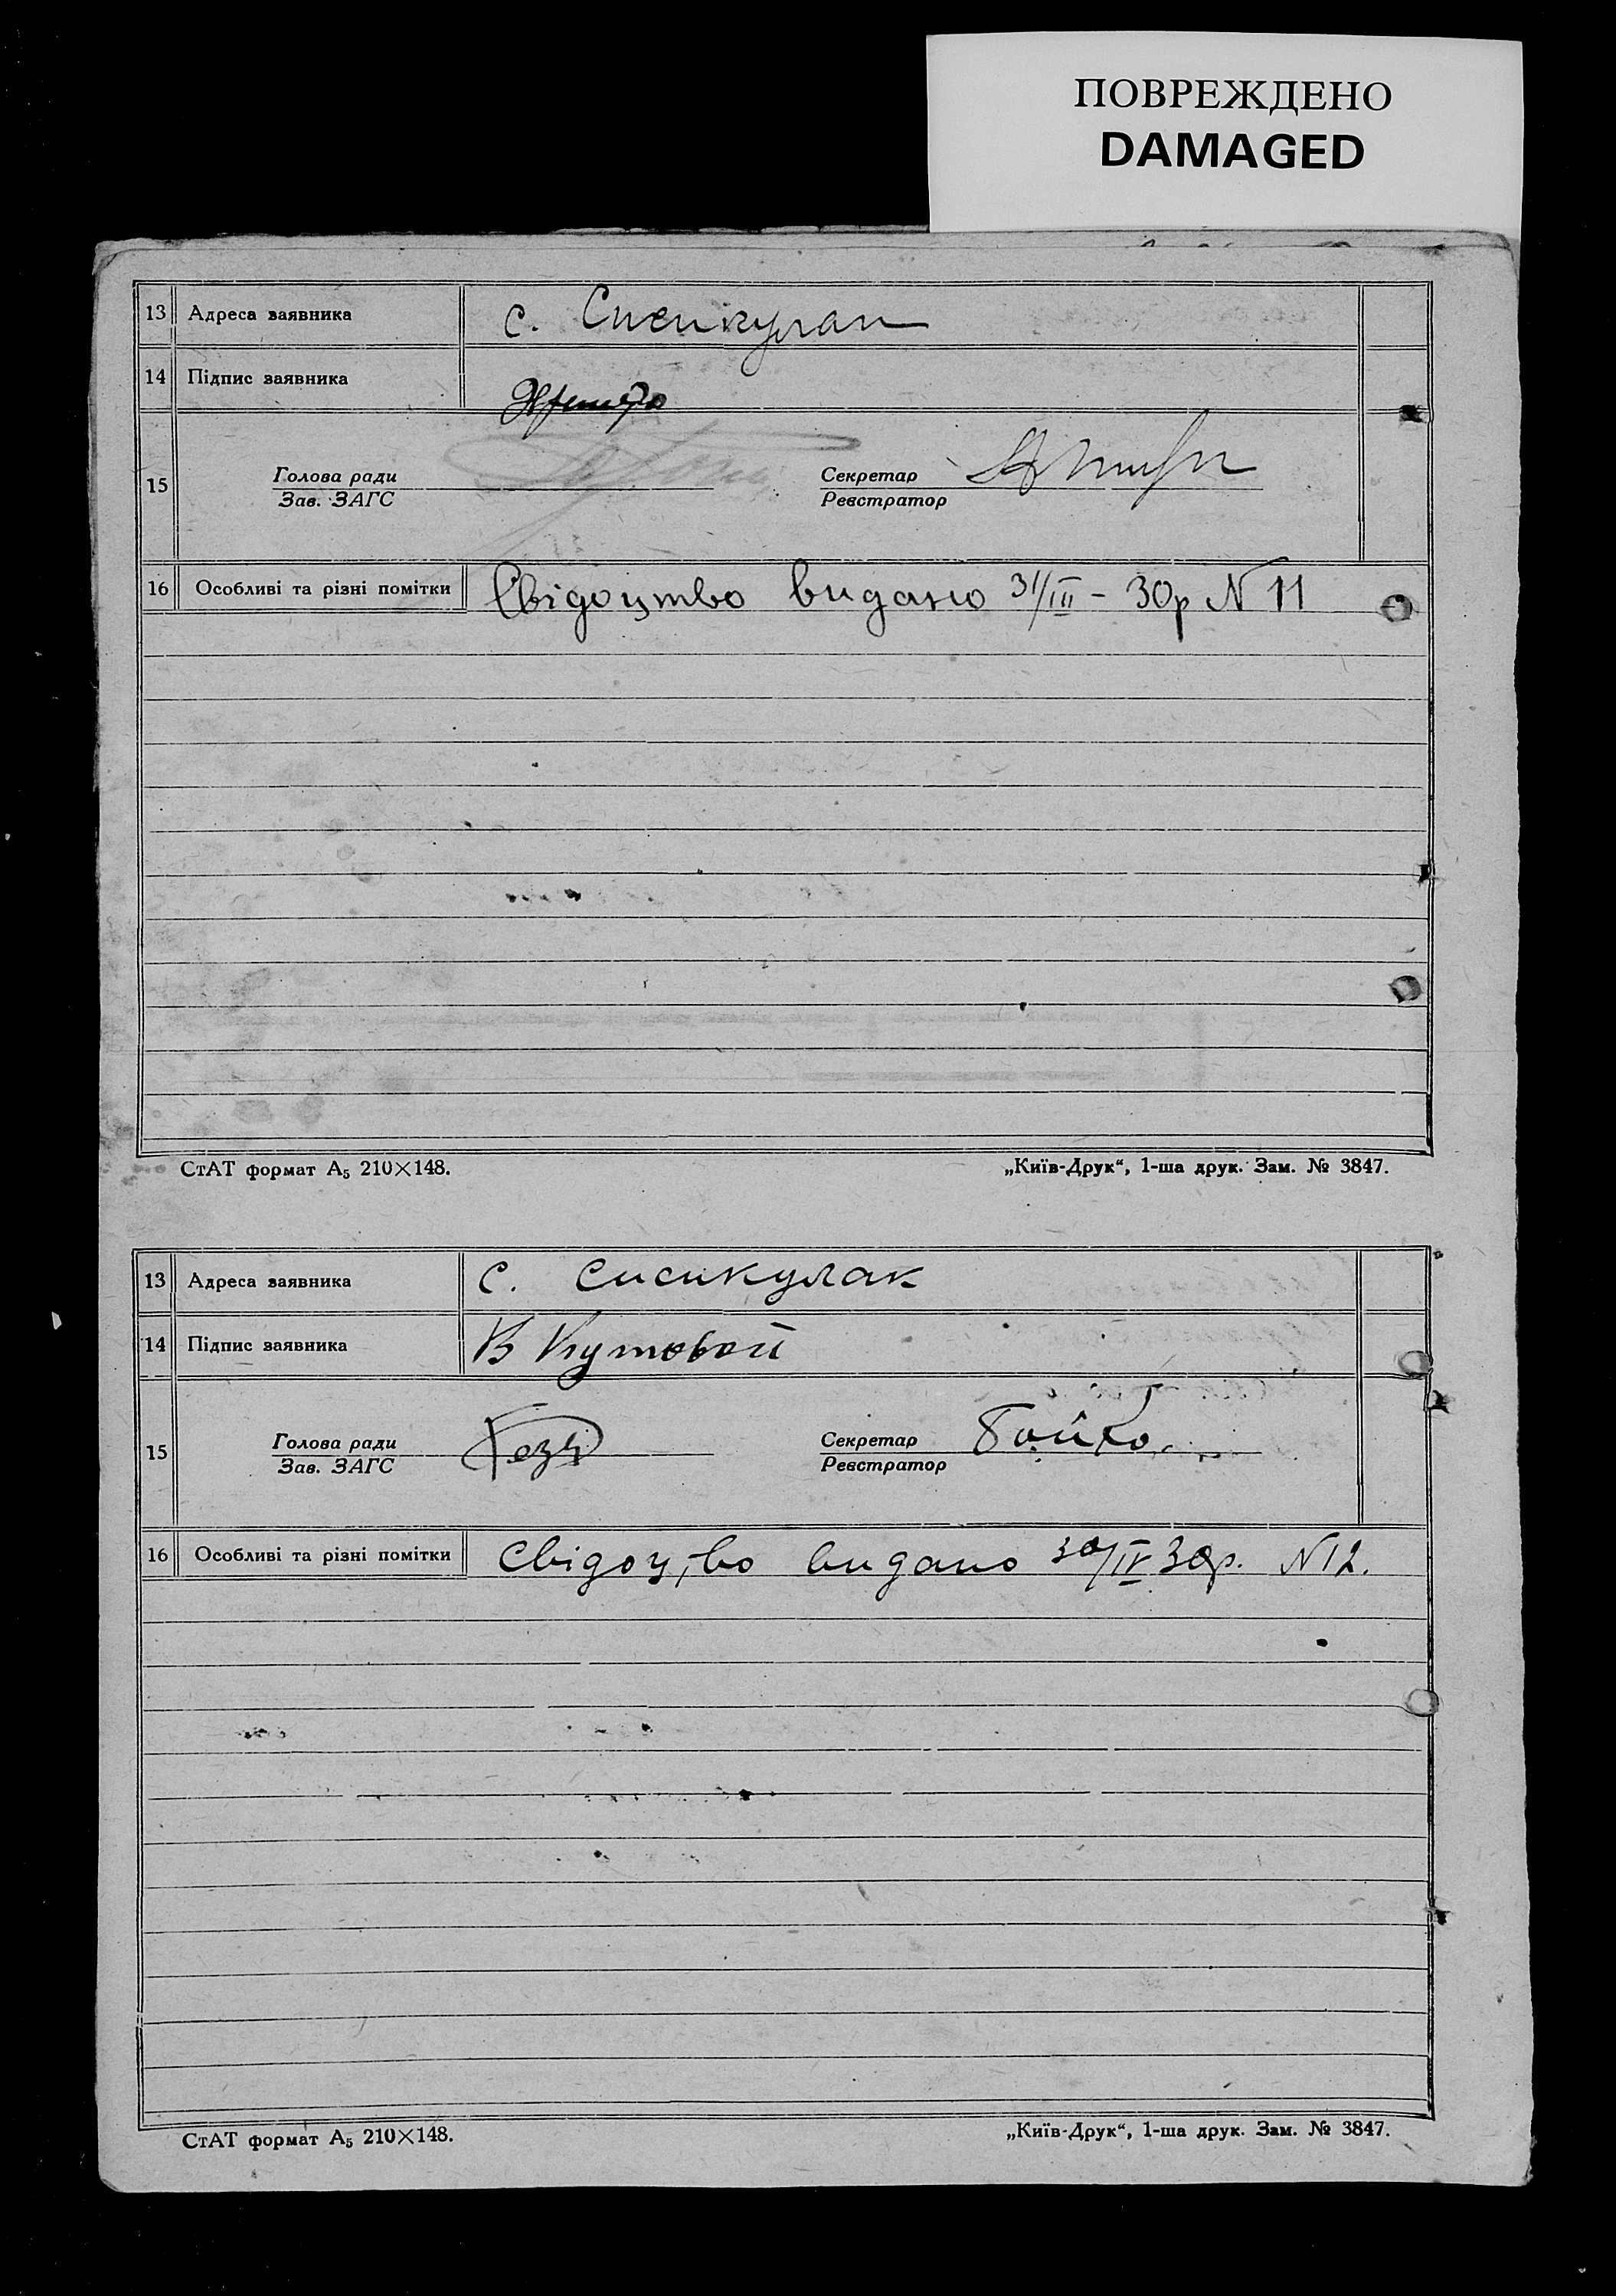 ПОВРЕЖДЕНО
DAMAGED
13 Адреса заявника с. Сисикулак
14 Підпис заявника
15 Голова ради Секретар
Зав. ЗАГС Реєстратор
16 Особливі та різні помітки Свідоцтво видано 31/III - 30р N 11
СтАТ формат А5 210×148. „Київ-Друк“, 1-ша друк. Зам. № 3847.
13 Адреса заявника с. Сисикулак
14 Підпис заявника В Кутовой
15 Голова ради Секретар Бойко.
Зав. ЗАГС Реєстратор
16 Особливі та різні помітки Свідоц,во видано 30/IV 30р. N 12.
СтАТ формат А5 210×148. „Київ-Друк“, 1-ша друк. Зам. № 3847.